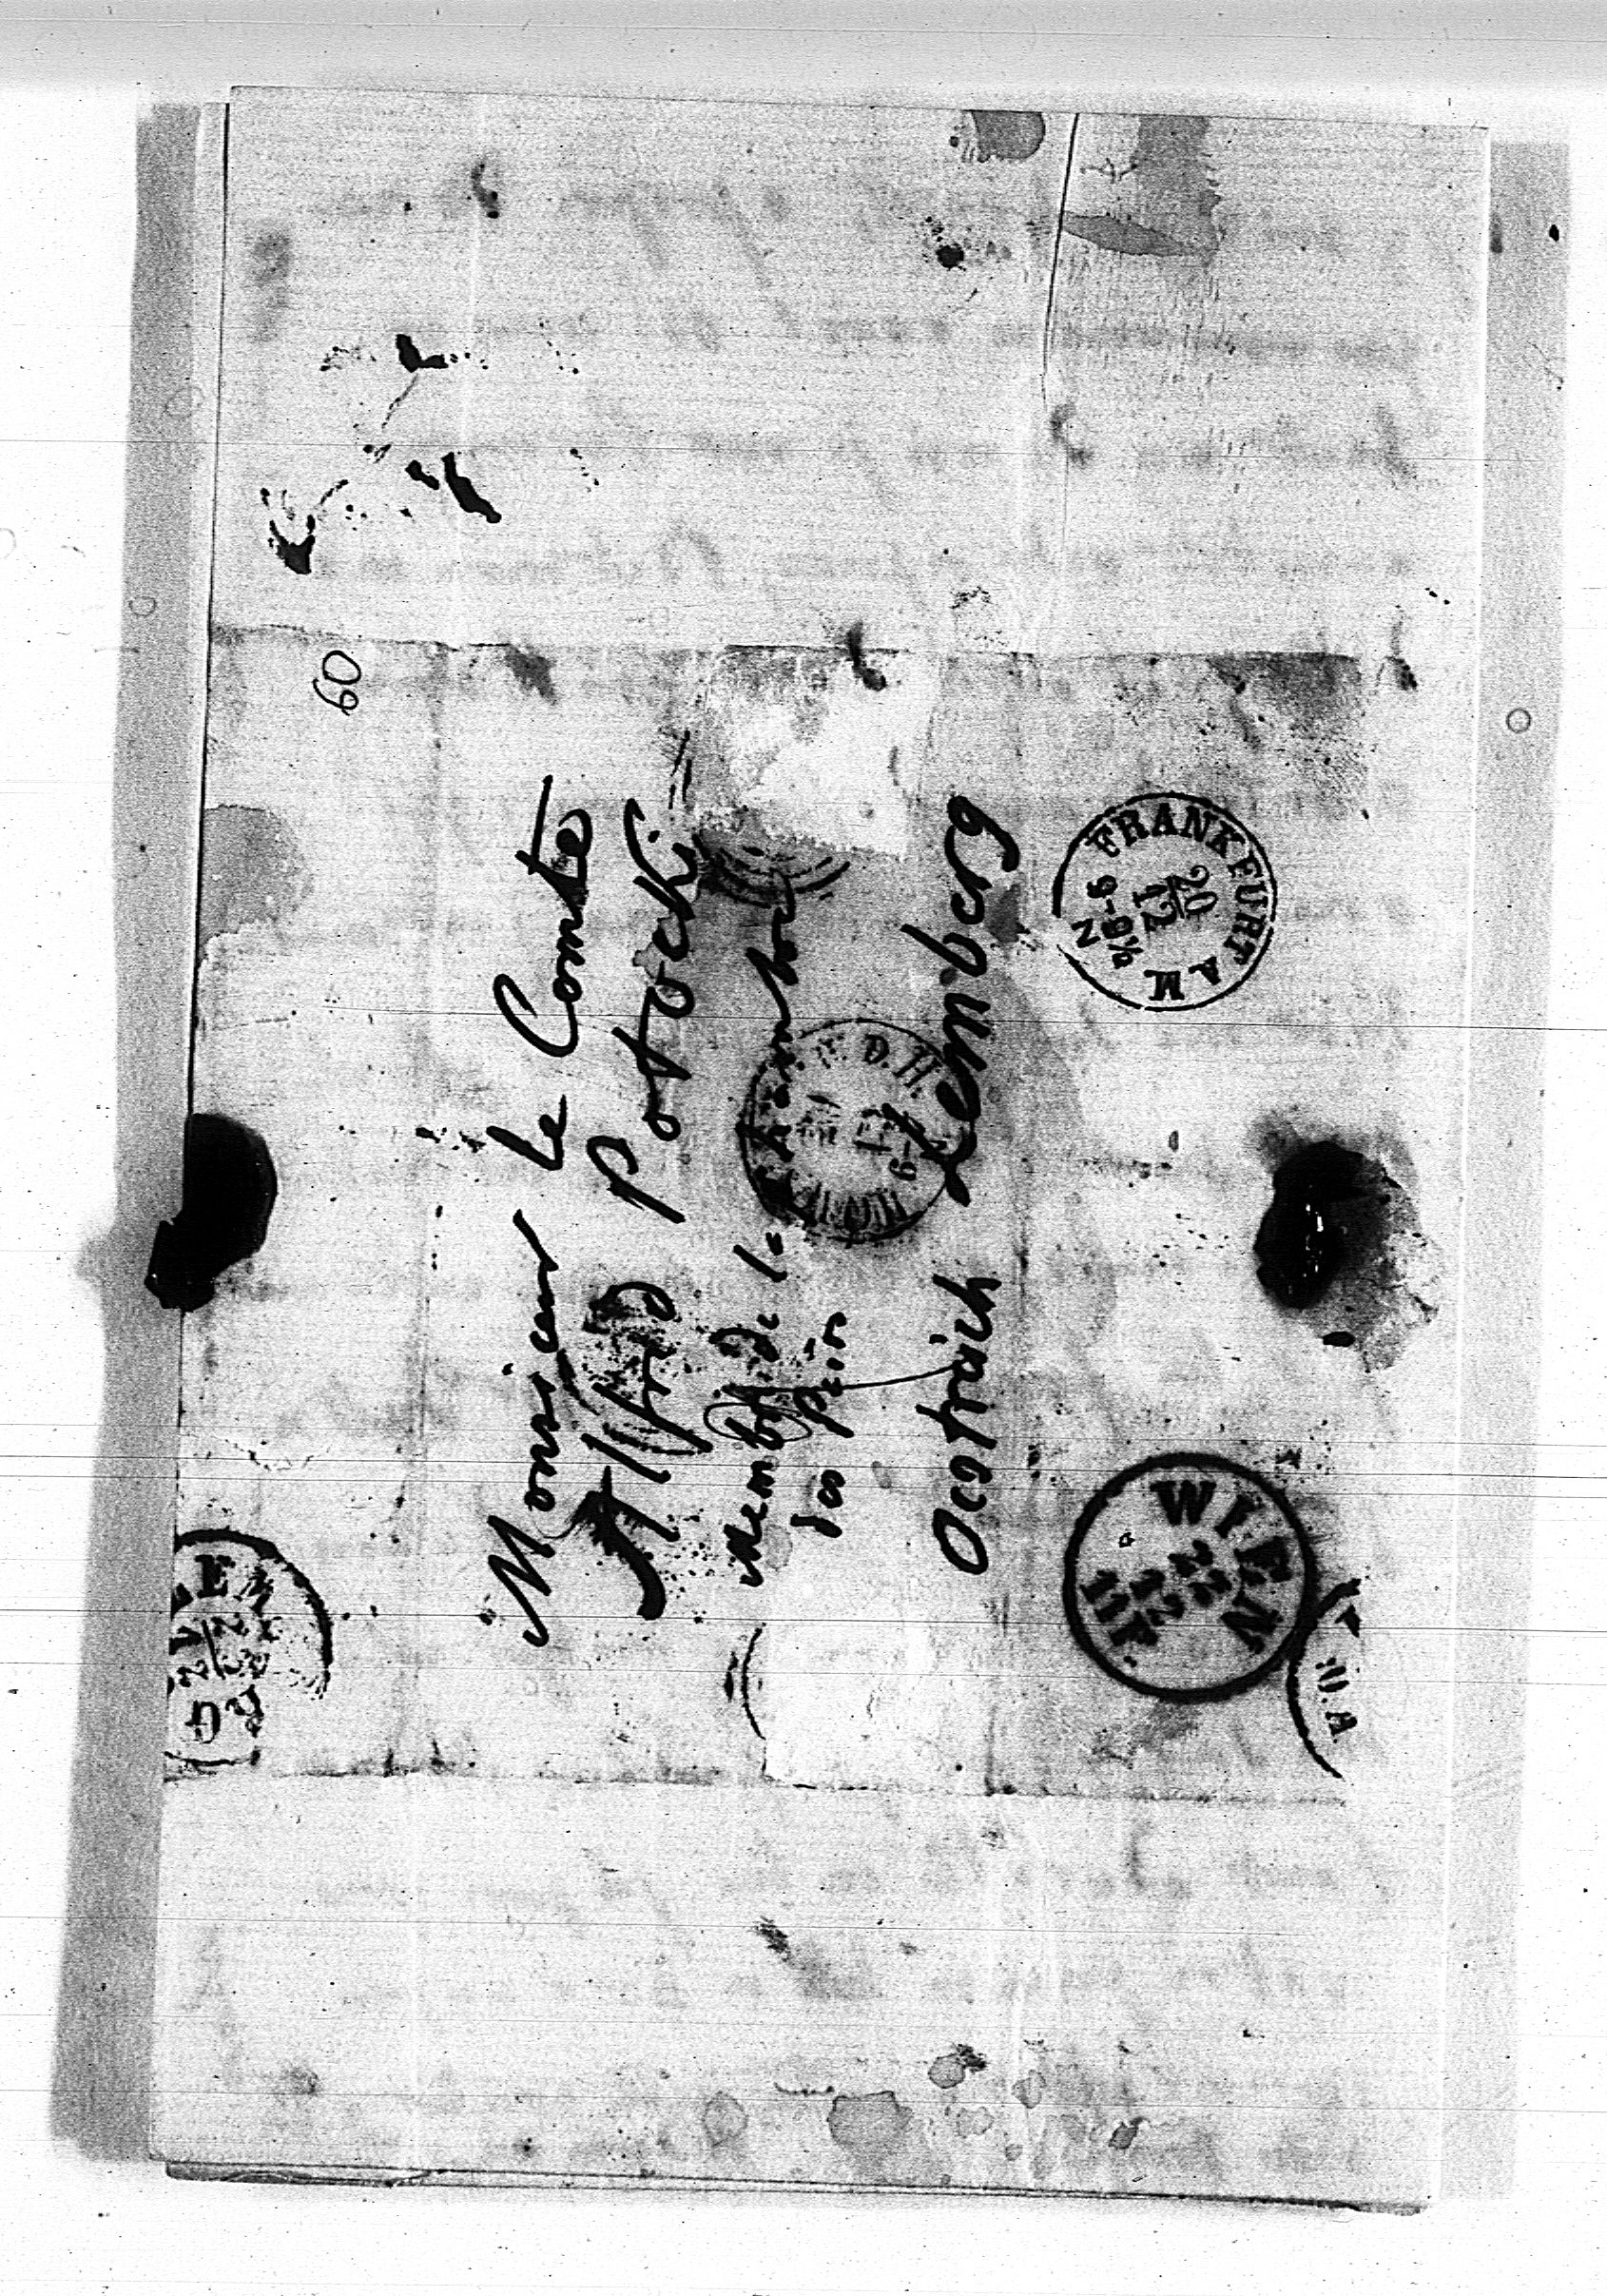 60
Monsieur le Comte
Alfred Potocki
membre de la chambre
des pairs
Oestraich Lemberg
FRANKFURT A M
20
12
9-9½
N
WIEN
22
12
11F
D. H.